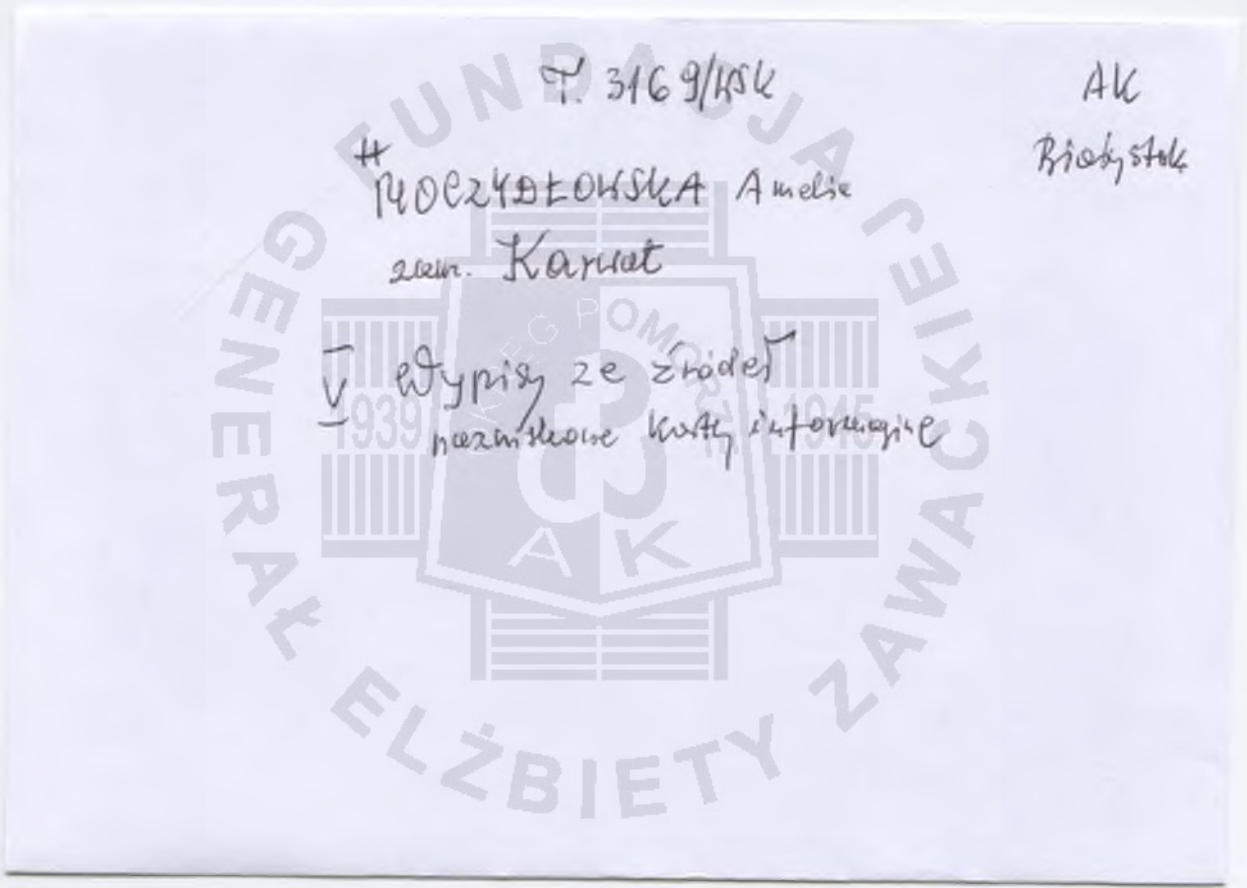 T. 3169/WSK
AK
Białystok
#
MOCZYDŁOWSKA Amelia
zam. Karwat
V Wypisy ze źródeł
nazwiskowe karty informacyjne
FUNDACJA GENERAŁ ELŻBIETY ZAWACKIEJ
OKRĘG POMORZE
1939 1945
AK